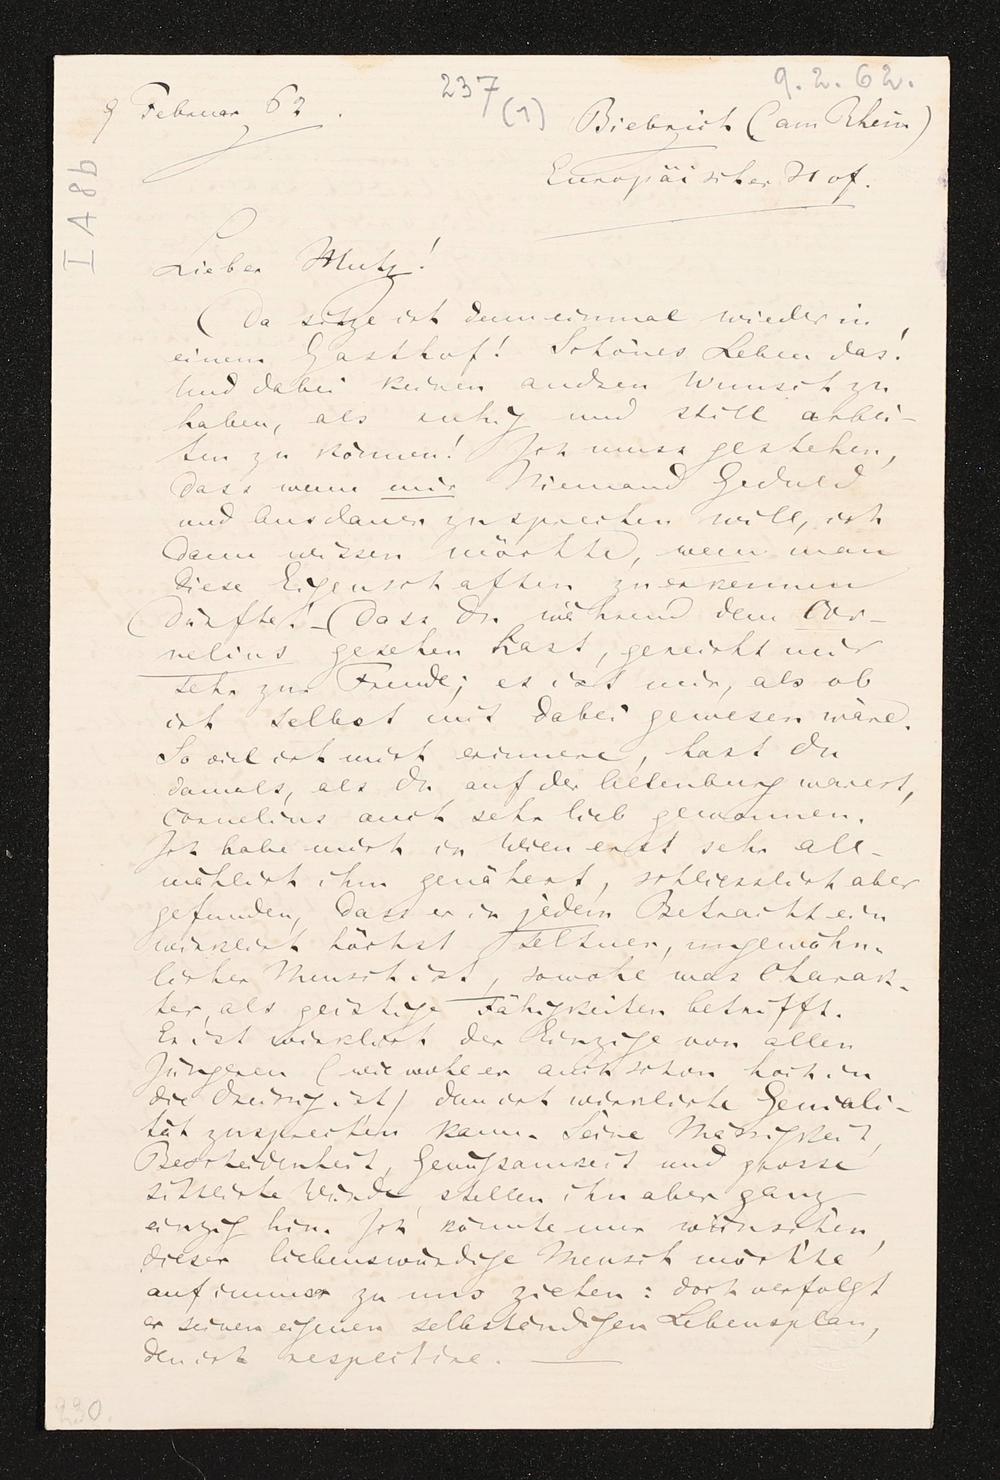 237
(1)
9. 2. 62.
9 Februar 62.
Biebrich (am Rhein)
Europäischer Hof.
I A 8b
Lieber Mutz!
Da sitze ich denn einmal wieder in
einem Gasthof! Schönes Leben das!
Und dabei keinen andren Wunsch zu
haben, als ruhig und still arbei-
ten zu können! Ich muss gestehen,
dass wenn mir Niemand Geduld
und Ausdauer zusprechen will, ich
dann wissen möchte, wem man
diese Eigenschaften zuerkennen
dürfte! – Dass Du während dem Cor-
nelius gesehen hast, gereicht mir
sehr zur Freude; es ist mir, als ob
ich selbst mit dabei gewesen wäre.
So viel ich mich erinnere, hast Du
damals, als Du auf der Altenburg warest,
Cornelius auch sehr lieb gewonnen.
Ich habe mich in Wien erst sehr all-
mählich ihm genähert, schliesslich aber
gefunden, dass er in jedem Betracht ein
wirklich höchst seltner, ungewöhn-
licher Mensch ist, sowohl was Charak-
ter, als geistige Fähigkeiten betrifft.
Er ist wirklich der Einzige von allen
Jüngeren (wiewohl er auch schon hoch in
die Dreissig ist) dem ich wirkliche Geniali-
tät zusprechen kann. Seine Mässigkeit,
Bescheidenheit, Genügsamkeit und grosse
sittliche Würde, stellen ihn aber ganz
einzig hin. Ich könnte nur wünschen,
dieser liebenswürdige Mensch möchte
auf immer zu uns ziehen: doch verfolgt
er seinen eigenen selbständigen Lebensplan,
den ich respectire. —
230.